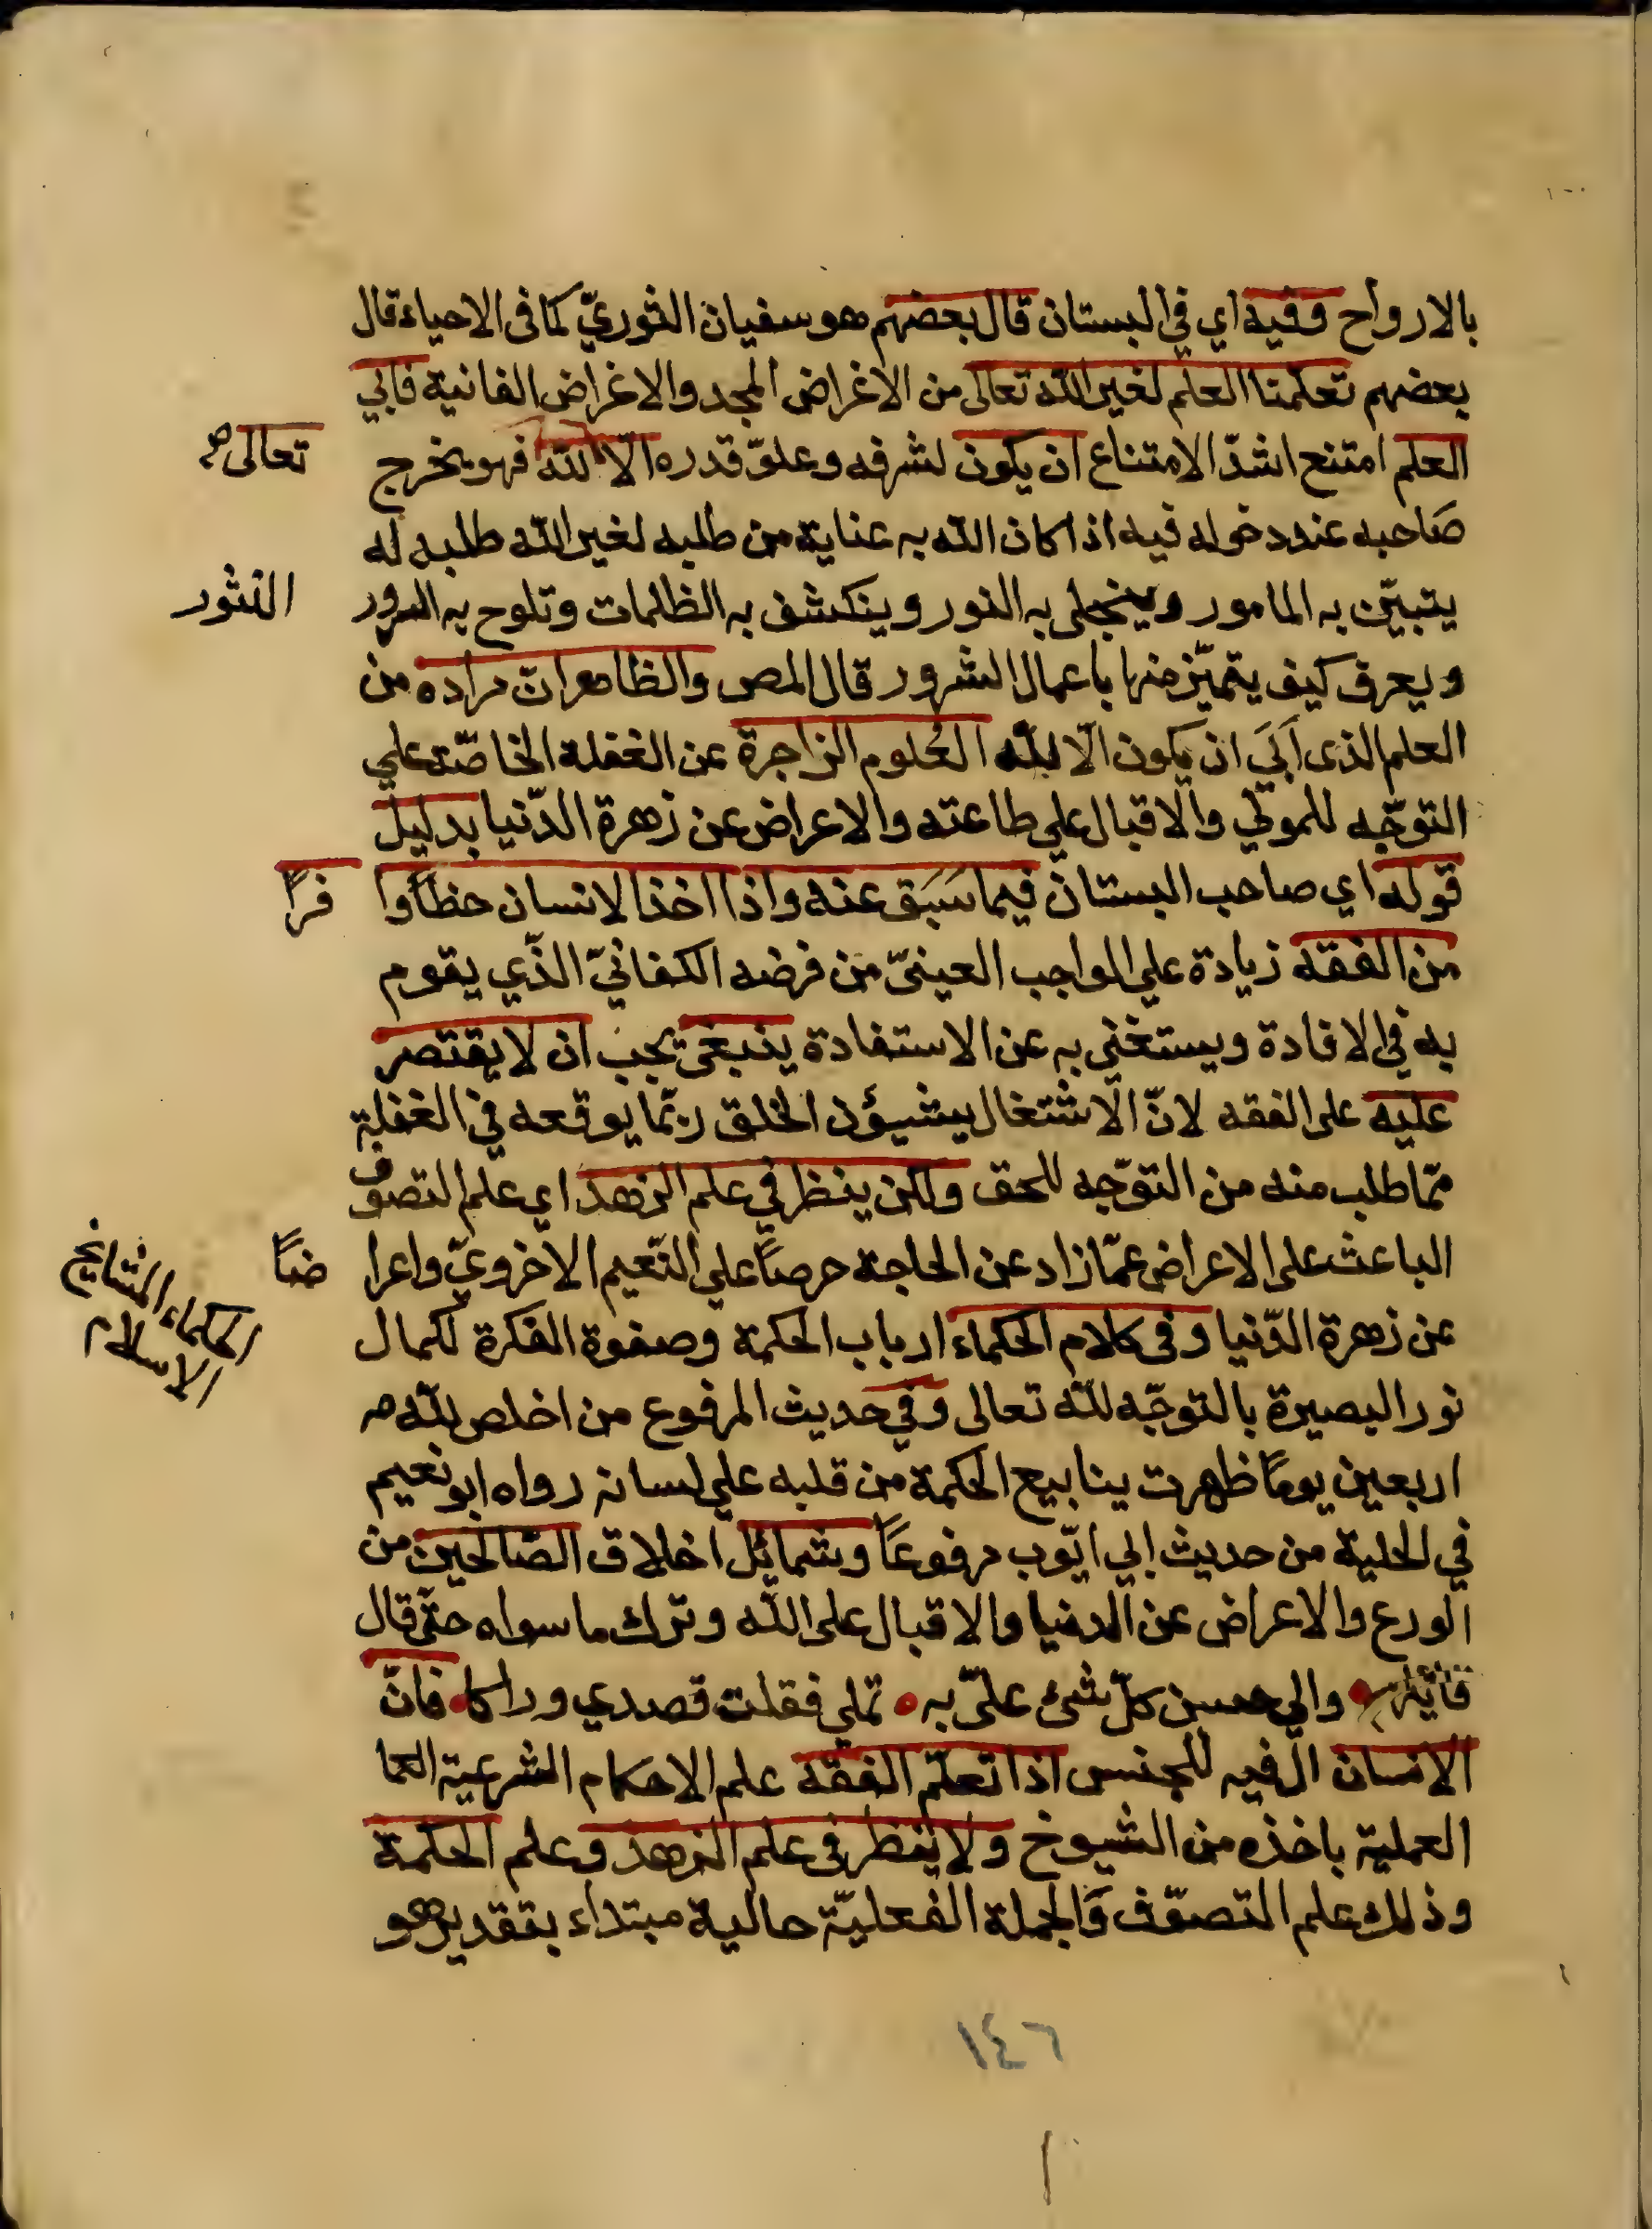 بالارواح وفيه اي في البستان قال بعضهم هو سفيان الثوريّ كما فى الاحياء قال
بعضهم تعلّمنا العلم لغير الله تعالى من الاغراض المجد والاغراض الفانية فابي
العلم امتنع اشدّ الامتناع ان يكون لشرفه وعلوّ قدره الّا لله فهو يخرج
تعالى صح
صاحبه عند دخوله فيه اذا كان الله به عناية من طلبه لغير الله طلبه له
يتبيّن به المامور وينجلى به النور وينكشف به الظلمات وتلوح به السرور
النثور
ويعرف كيف يتميّز منها باعمال الشرور قال المص والظاهر ان مراده من
العلم الذى اَبَي ان يكون الّا لله العُلوم الزاجرة عن الغفلة الخاصّة علي
التوجّه للمولي والاقبال علي طاعته والاعراض عن زهرة الدّنيا بدليل
قوله اي صاحب البستان فيما سَبَق عنه واذا اخذ الانسان حظاً وا
فراً
من الفقه زيادة علي الواجب العينىّ من فرضه الكفائيّ الذّي يقوم
به في الافادة ويستغني به عن الاستفادة ينبغى يجب ان لا يقتصر
عليه على الفقه لانّ الاشتغال بشيؤن الخلق ربّما يوقعه في الغفلة
ممّا طلب منه من التوّجه للحق ولكن ينظر في علم الزهد اي علم التصوف
الباعث على الاعراض عمّا زاد عن الحاجة حرصاً علي النّعيم الاخرويّ واعرا
ضاً
عن زهرة الدّنيا وفى كلام الحكماء ارباب الحكمة وصفوة الفكرة لكمال
الحكماء المشايخ
الاسلام
نور البصيرة بالتوجّه لله تعالى وفي حديث المرفوع من اخلص لله
اربعين يوماً ظهرت ينابيع الحكمة من قلبه علي لسانه رواه ابو نعيم
في الحلية من حديث ابي ايّوب مرفوعاً وشمائل اخلاق الصّالحين من
الورع والاعراض عن الدنيا والاقبال على الله وترك ما سواه حتّى قال
قائلهم والي حسن كلّ شئ علىّ به تملي فقلت قصدي وراكا فانّ
الانسان ال فيه للجنس اذا تعلّم الفقه علم الاحكام الشرعية العا
العملية باخذه من الشيوخ ولا ينظر فى علم الزهد وعلم الحكمة
وذلك علم التصوّف وَالجملة الفعليّة حالية مبتداء بتقدير هو
١٤٦